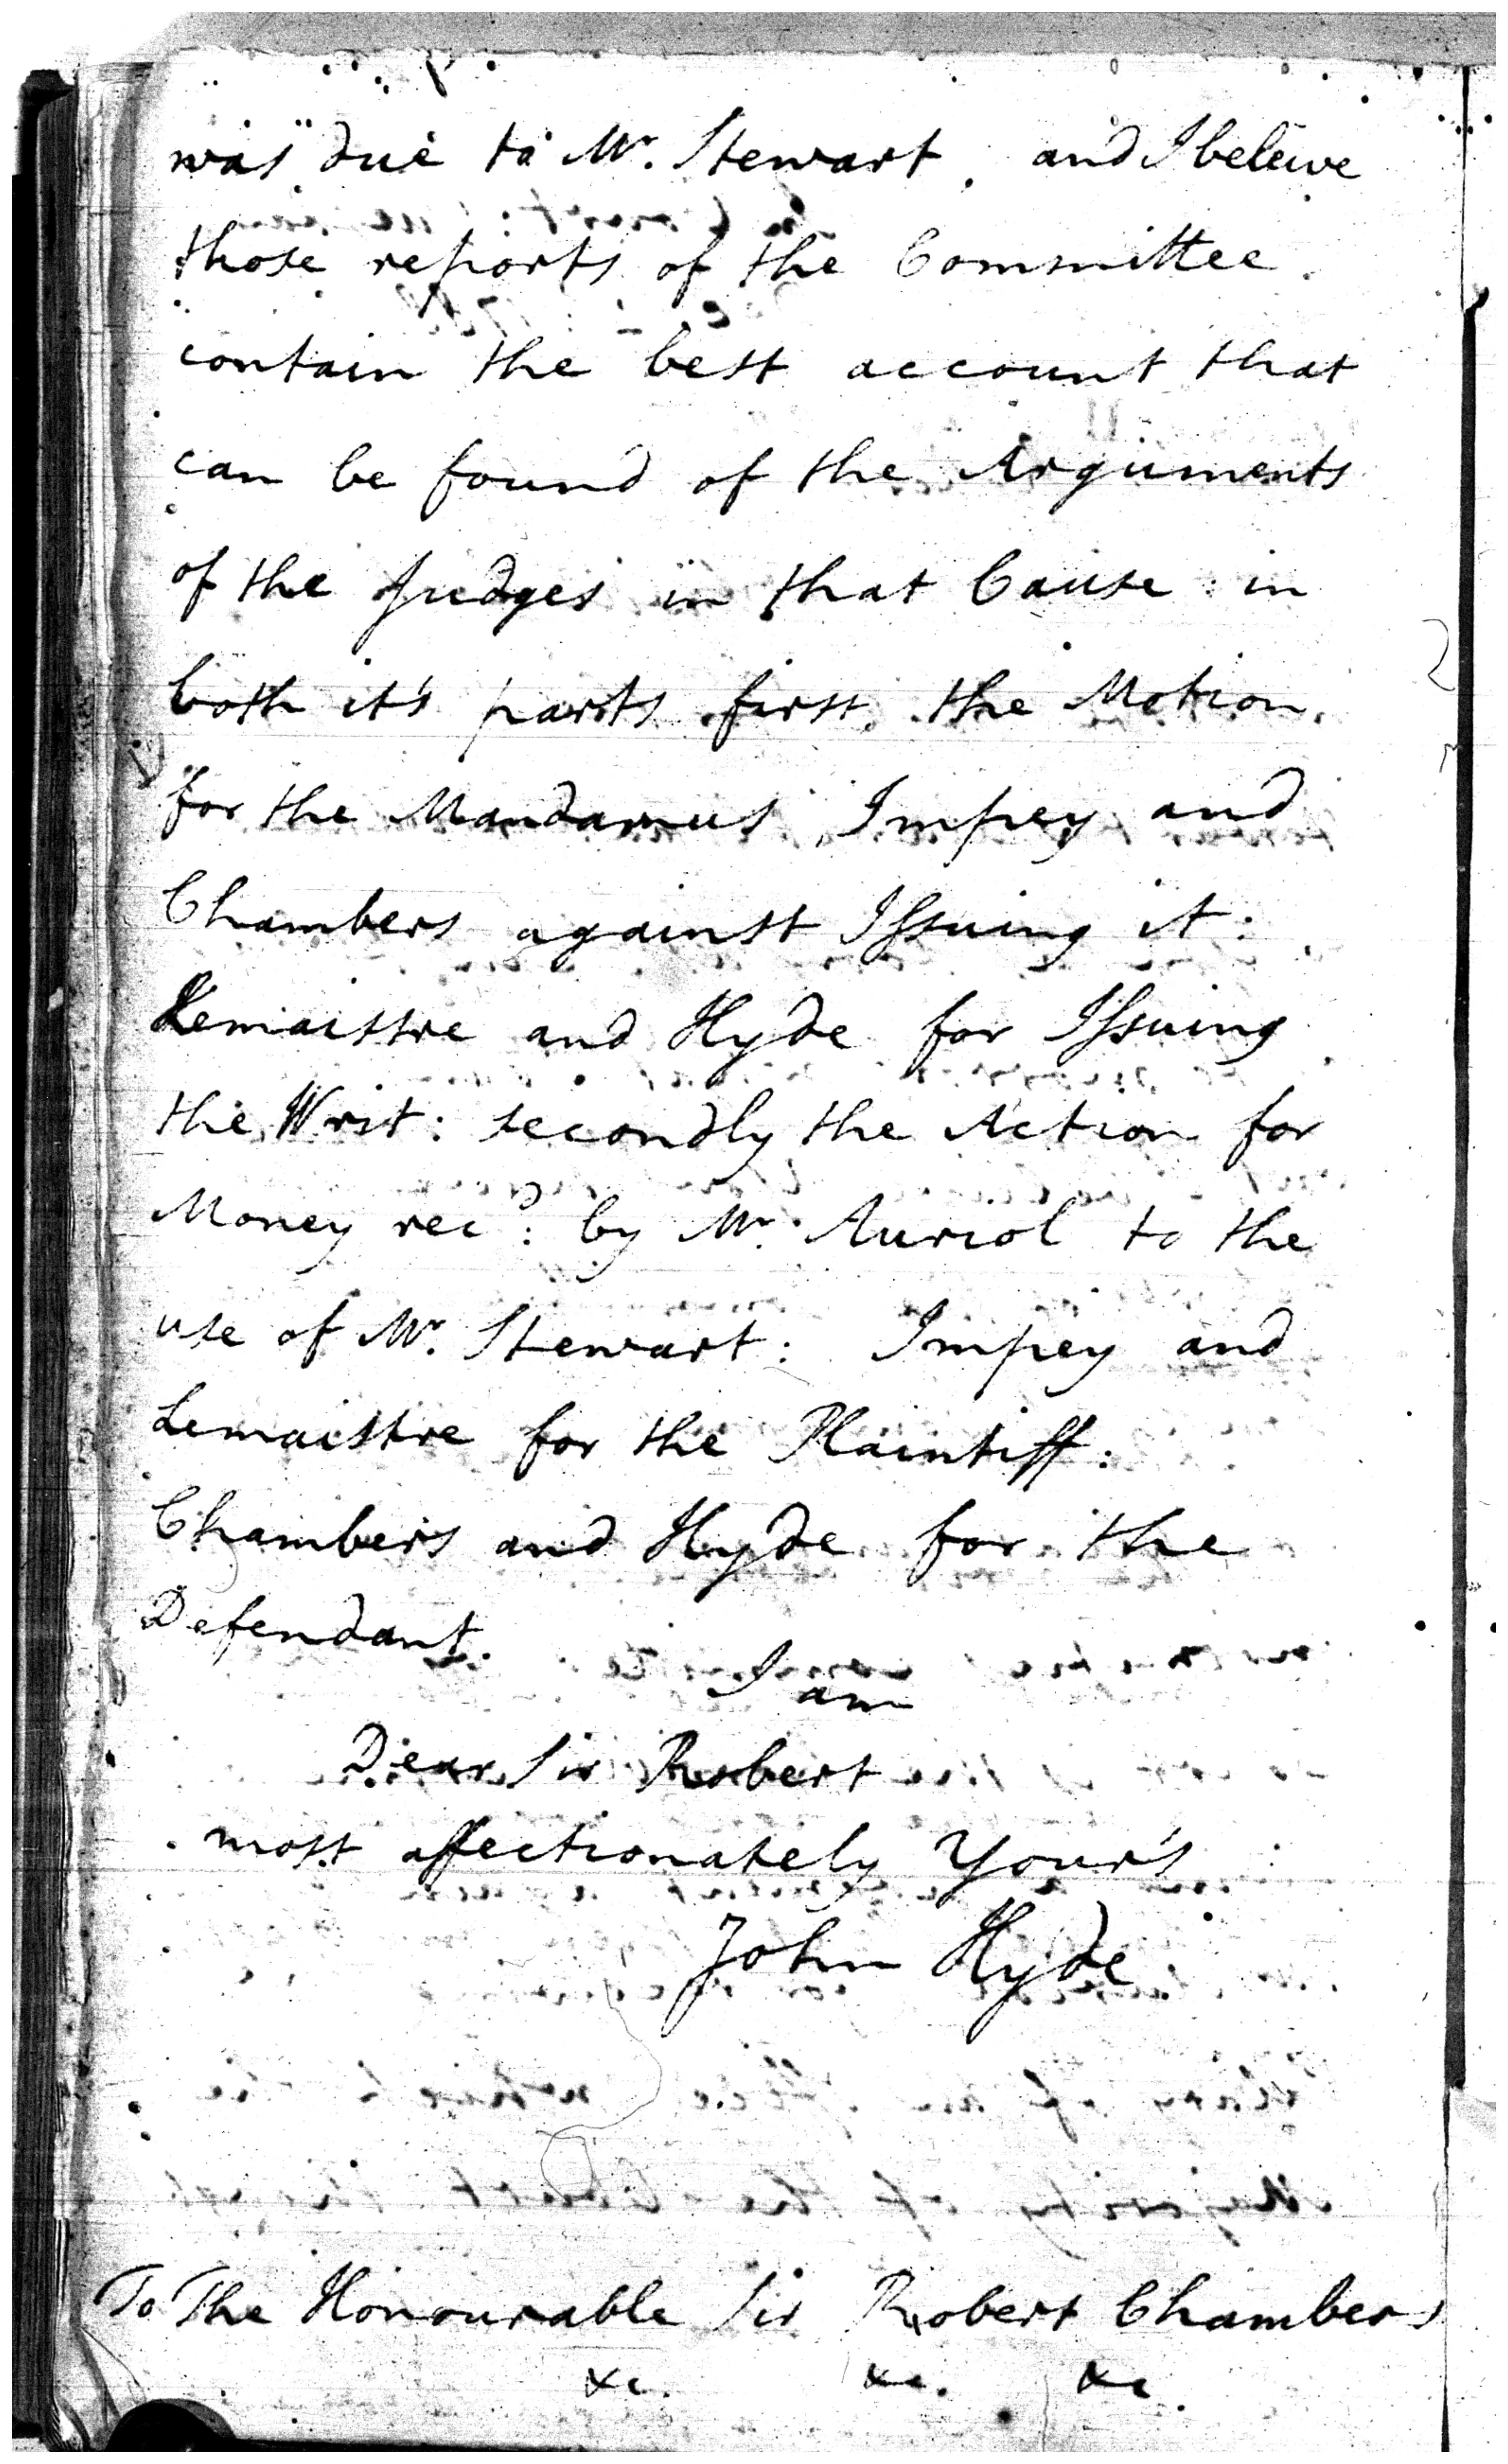 was due to Mr. Stewart, and I beleive
those reports of the Committee
contain the best account that
can be found of the Arguments
of the Judges in that Cause in
both it's parts first the Motion
for the Mandamus, Impey and
Chambers against Issuing it:
Lemaistre and Hyde for Issuing
the Writ: secondly the Action for
Money recd: by Mr. Auriol to the
use of Mr. Stewart: Impey and
Lemaistre for the Plaintiff:
Chambers and Hyde for the
Defendant.
I am
Dear Sir Robert
most affectionately Your's
John Hyde
To The Honourable Sir Robert Chambers
&c. &c. &c